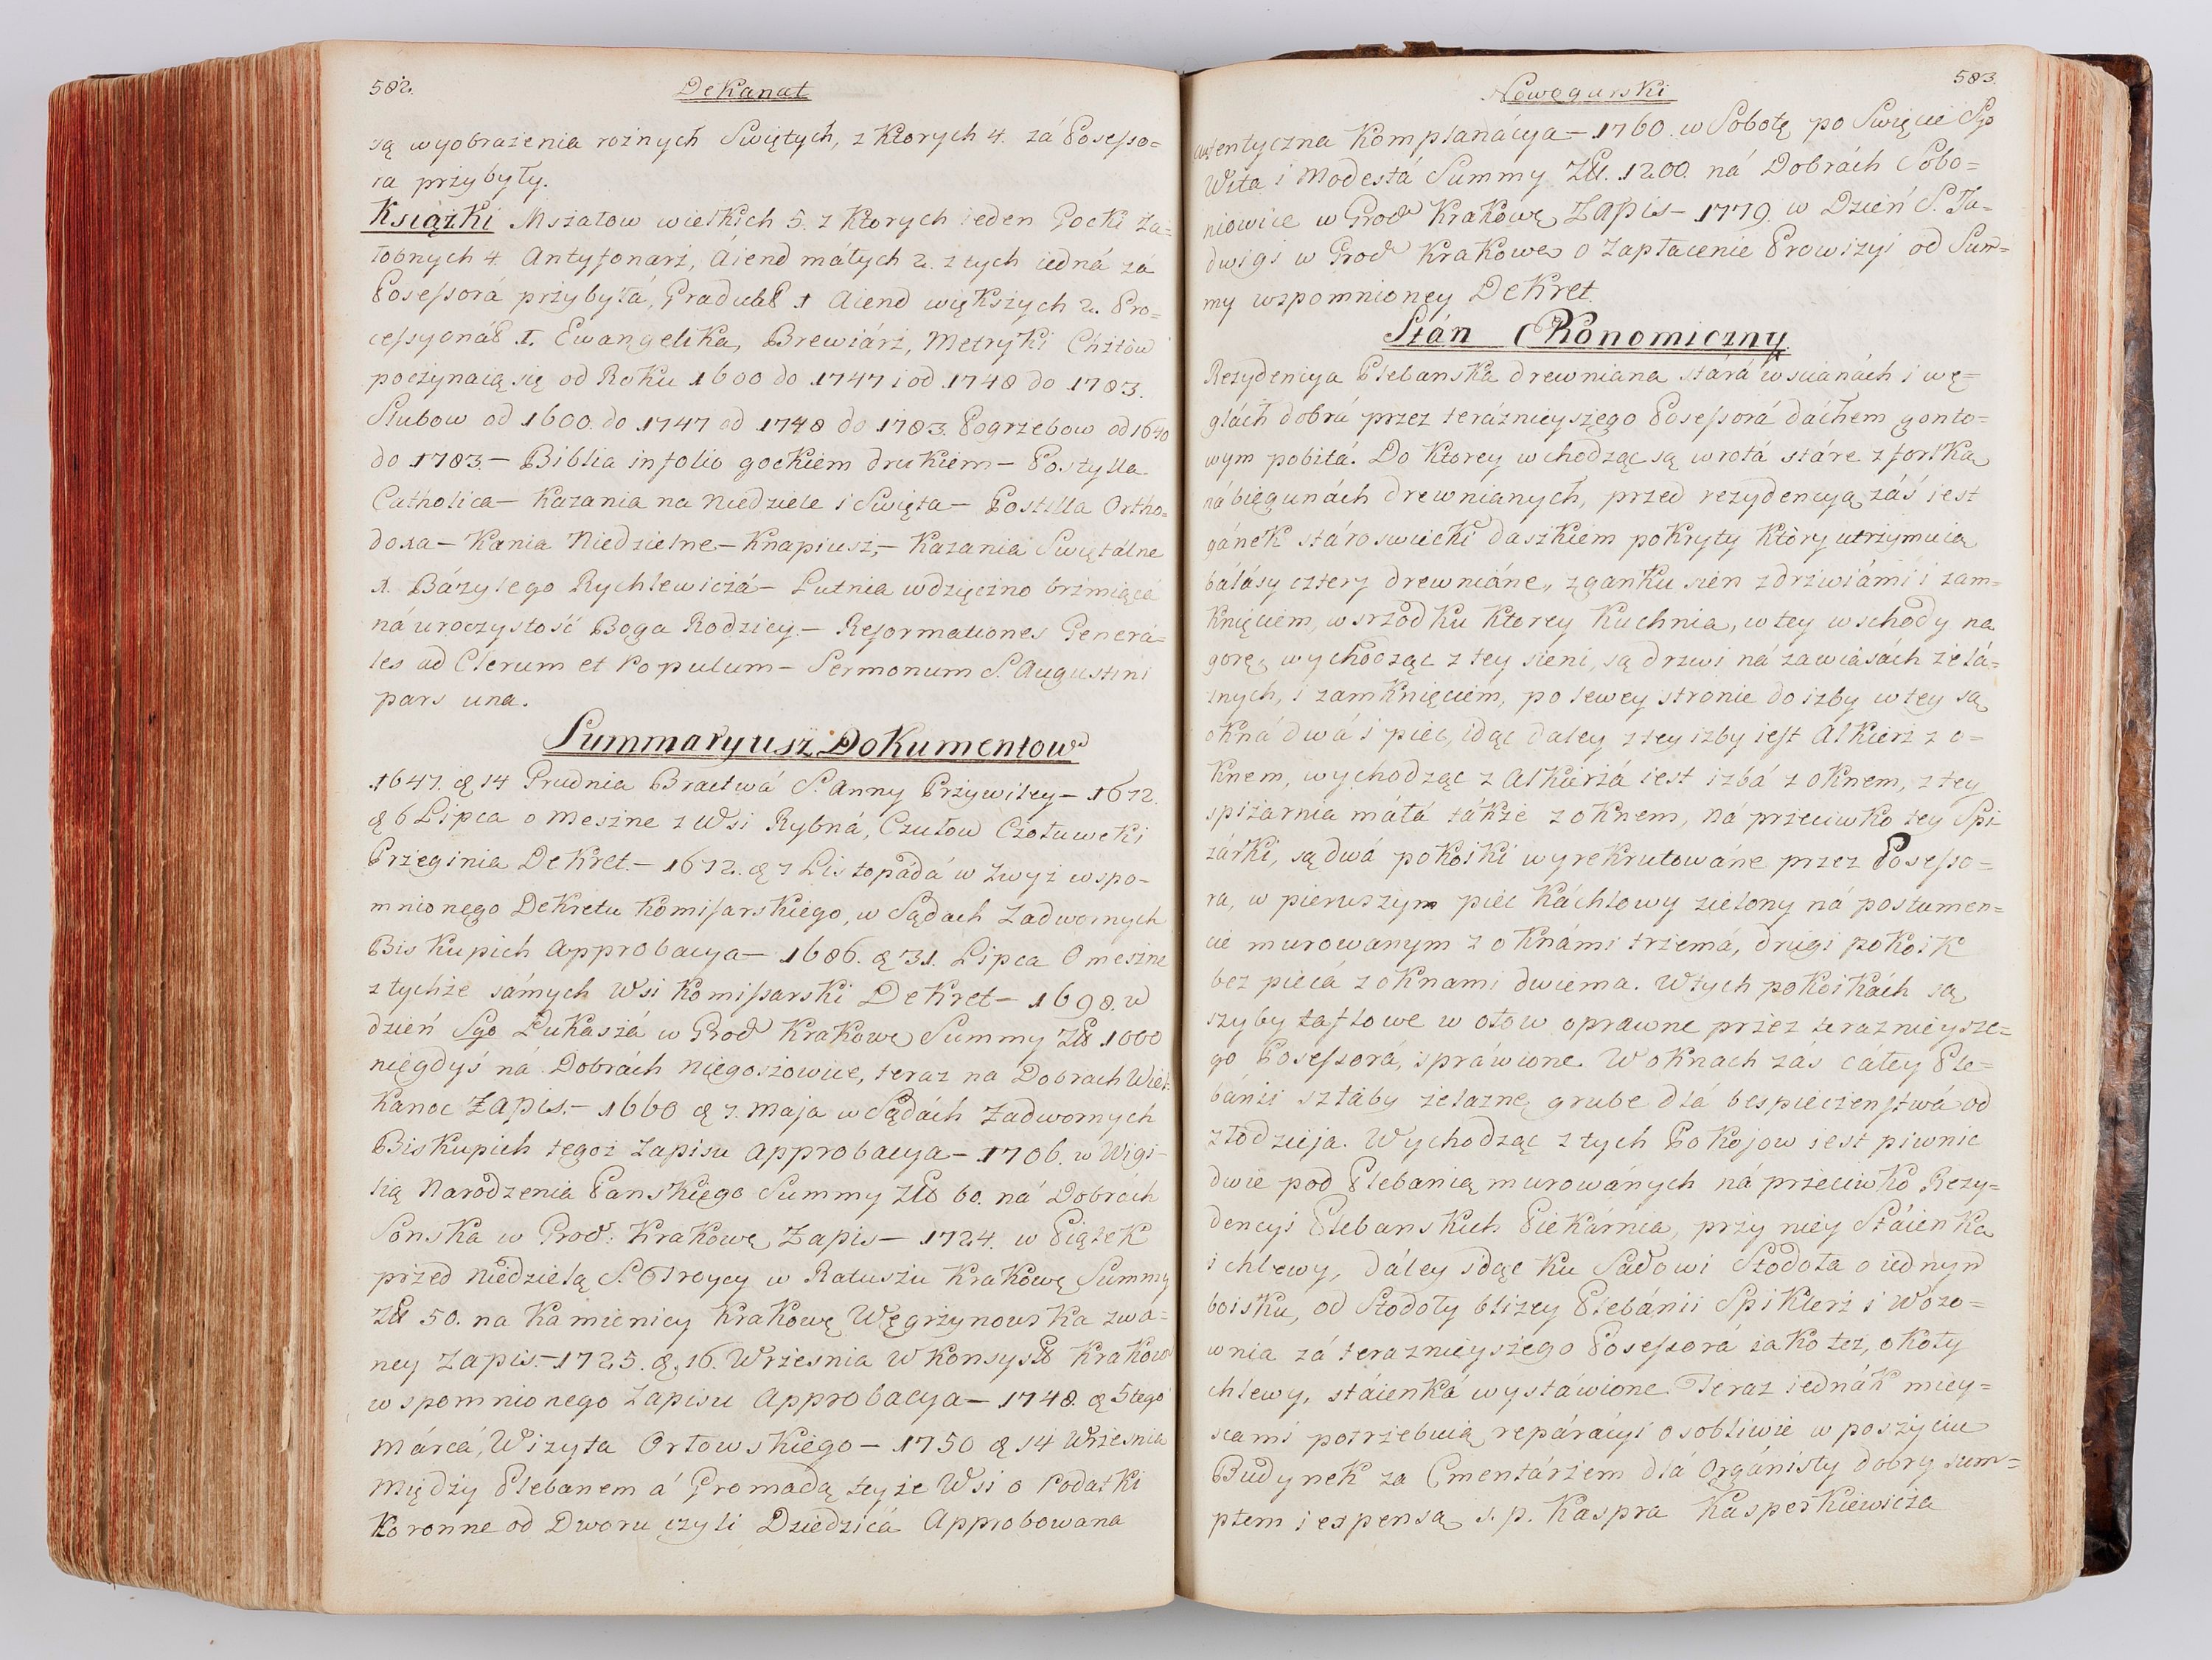 582.
Dekanat
są wyobrażenia rożnych Swiętych, z ktorych 4. zá Posesso=
ra przybyły.
Książki Mszałow wielkich 5. z ktorych ieden Gocki Ża=
łobnych 4. Antyfonarz, Aiend máłych 2. z tych iedná zá
Posessorá przybyłá, Graduał 1 Aiend większych 2. Pro=
cessyonáł 1. Ewangelika, Brewiárz, Metryki Chrztow
poczynaią się od Roku 1600 do 1747 i od 1748 do 1783.
Slubow od 1600. do 1747 od 1748 do 1783. Pogrzebow od 1640
do 1783.— Biblia in folio gockiem drukiem— Postylla
Catholica— Kazania na Niedziele i Swięta— Postilla Ortho=
doxa— Kania Niedzielne— Knapiusz,— Kazania Swiętálne
X. Bázylego Rychlewiczá— Lutnia wdzięczno brzmiącá
ná uroczystość Boga Rodzicy.— Reformationes Generá=
les ad Clerum et Populum— Sermonum S. Augustini
pars una.
Summaryusz Dokumentow
1647. d. 14 Grudnia Bractwá S. Anny Przywiley— 1672.
d 6 Lipca o Meszne z Wsi Rybná, Czułow Czołuwcki
Przeginia Dekret.— 1672. d 7 Listopadá w zwyż wspo-
mnionego Dekretu Komisarskiego, w Sądach Zadwornych
Biskupich Approbacya— 1686. d 31. Lipca O meszne
z tychże sámych Wsi Komissarski Dekret— 1698. w
dzień Sgo Łukaszá w Grod Krakowę Summy Złł 1000
niegdyś ná Dobrách Niegoszowice, teraz na Dobrach Wiel-
kanoc Zapis.— 1660 d 7. Maja w Sądách Zadwornych
Biskupich tegoż Zapisu Approbacya— 1706. w Wigi-
lią Narodzenia Panskiego Summy Złł 60. ná Dobrách
Sonska w Grod: Krakowę Zapis— 1724. w Piątek
przed Niedzielą S. Troycy w Ratuszu Krakowę Summy
Złł 50. na Kamienicy Krakowę Węgrzynowska zwa=
ney Zapis.— 1725. d. 16. Wrzesnia w Konsysł Krakow
wspomnionego Zapisu Approbacya— 1748. d 5tego
Márca, Wizyta Orłowskiego— 1750 d 14 Wrzesnia
między Plebanem á Gromadą teyże Wsi o Podatki
Koronne od Dworu czyli Dziedzicá Approbowana
583.
Nowogurski
autentyczna Komplanácya— 1760. w Sobotę po Swięcie Sgo
Wita i Modestá Summy Złł. 1200. ná Dobrách Sobo=
niowice w Grod Krakowę Zapis— 1779. w Dzień S. Ja=
dwigi w Grod Krakowę o Zapłacenie Prowizyi od Sum=
my wspomnioney Dekret.
Stán Ekonomiczny
Rezydencya Plebanska drewniana stárá w scianách i wę=
głách dobrá przez teráznieyszego Posessorá dáchem gonto=
wym pobitá. Do ktorey wchodząc są wrotá stáre z fortką
ná biegunách drewnianych, przed rezydencyą záś iest
gánek stároswiecki daszkiem pokryty ktory utrzymuią
bálásy cztery drewniáne, z ganku sien z drzwiámi i zam=
knięciem, wsrzodku ktorey Kuchnia, w tey wschody na
gorę, wychodząc z tey sieni, są drzwi ná zawiasách żelá=
znych, i zamknięciem, po lewey stronie do izby w tey są
okná dwá i piec, idąc daley z tey izby iest Alkierz z o=
knem, wychodząc z Alkierzá iest izbá z oknem, z tey
spiżarnia máłá tákże z oknem, ná przeciwko tey Spi-
żárki, są dwá pokoiki wyrekrutowáne przez Posesso=
ra, w pierwszym piec káchlowy zielony ná postumen=
cie murowanym z oknámi trzemá, drugi pokoik
bez piecá z oknami dwiema. W tych pokoikách są
szyby taflowe w ołow oprawne przez teraznieysze=
go Posessorá, spráwione. W oknach zás cáłey Ple=
bánii sztáby żelazne grube dlá bespieczenstwá od
złodzieja. Wychodząc z tych Pokojow iest piwnic
dwie pod Plebanią murowánych ná przeciwko Rezy=
dencyi Plebanskich Piekárnia, przy niey Stáienka
i chlewy, dáley idąc ku Sadowi Stodoła o iednym
boisku, od Stodoły bliżey Plebánii Spiklerz i Wozo=
wnia zá teraznieyszego Posessorá iako też, okoły
chlewy, stáienká wystáwione. Teraz iednák miey=
scami potrzebuią reparácyi osobliwie w poszyciu
Budynek za Cmentárzem dlá Orgánisty dobry sum=
ptem i expensą s. p. Kaspra Kasperkiewicza